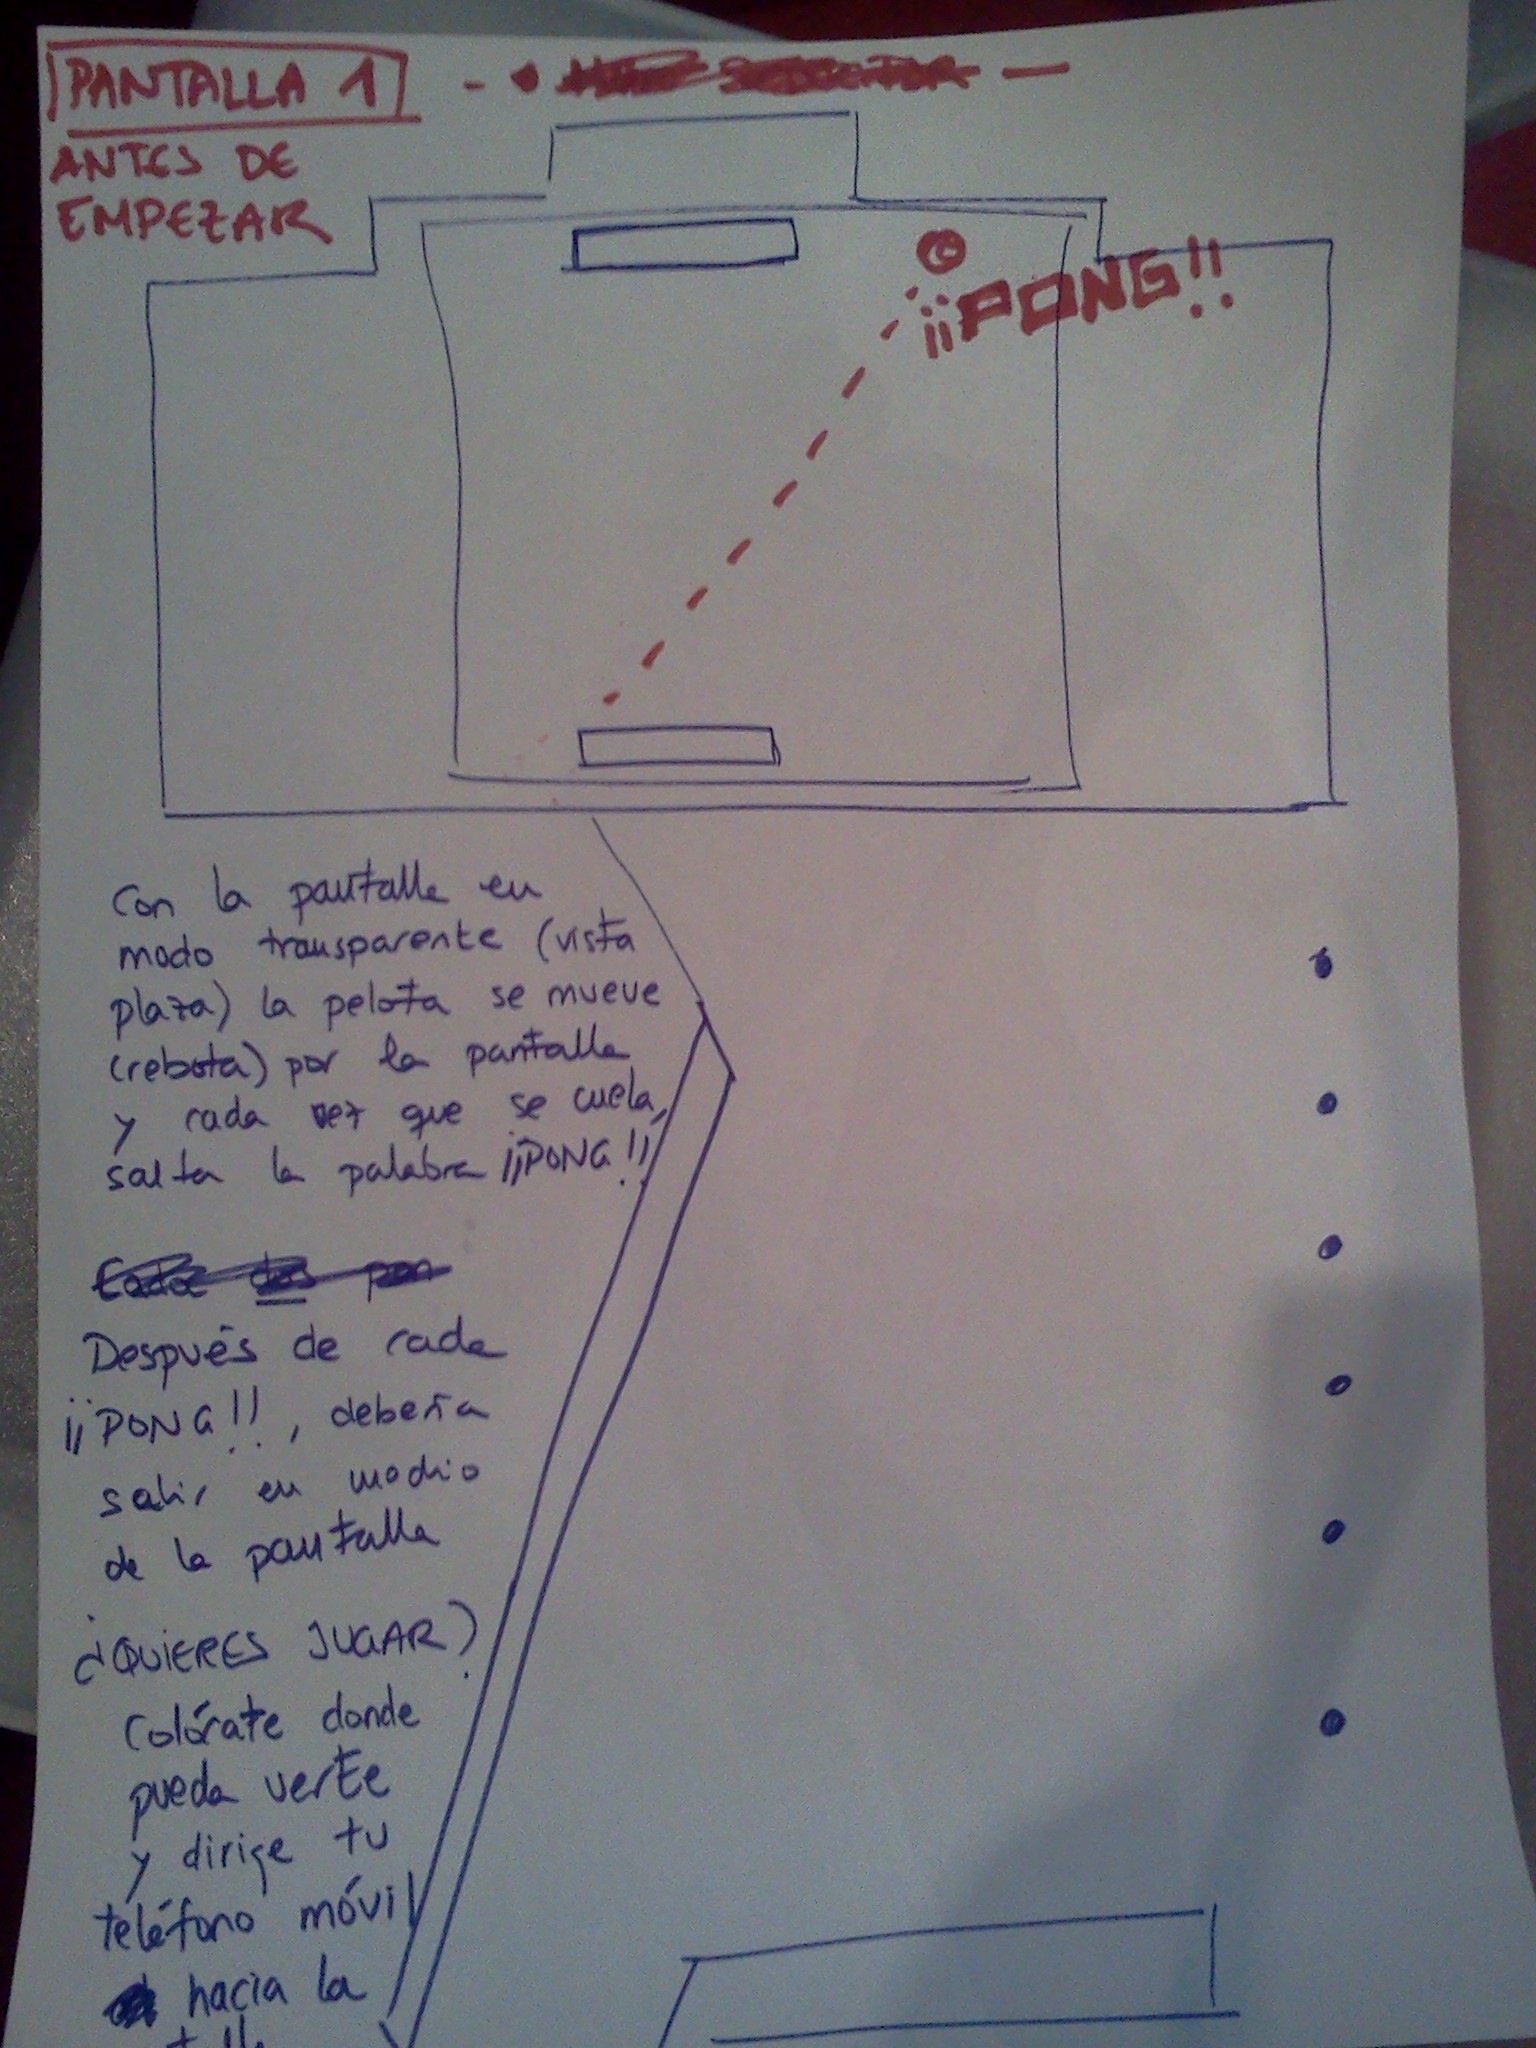 PANTALLA 1
ANTES DE
EMPEZAR
¡¡PONG!!
Con la pantalla en
modo transparente (vista
plaza) la pelota se mueve
(rebota) por la pantalla
y cada vez que se cuela,
salta la palabra ¡¡PONG!!
Después de cada
¡¡PONG!!, debería
salir en medio
de la pantalla
¿QUIERES JUGAR?
Colórate donde
pueda verte
y dirige tu
teléfono móvil
hacia la